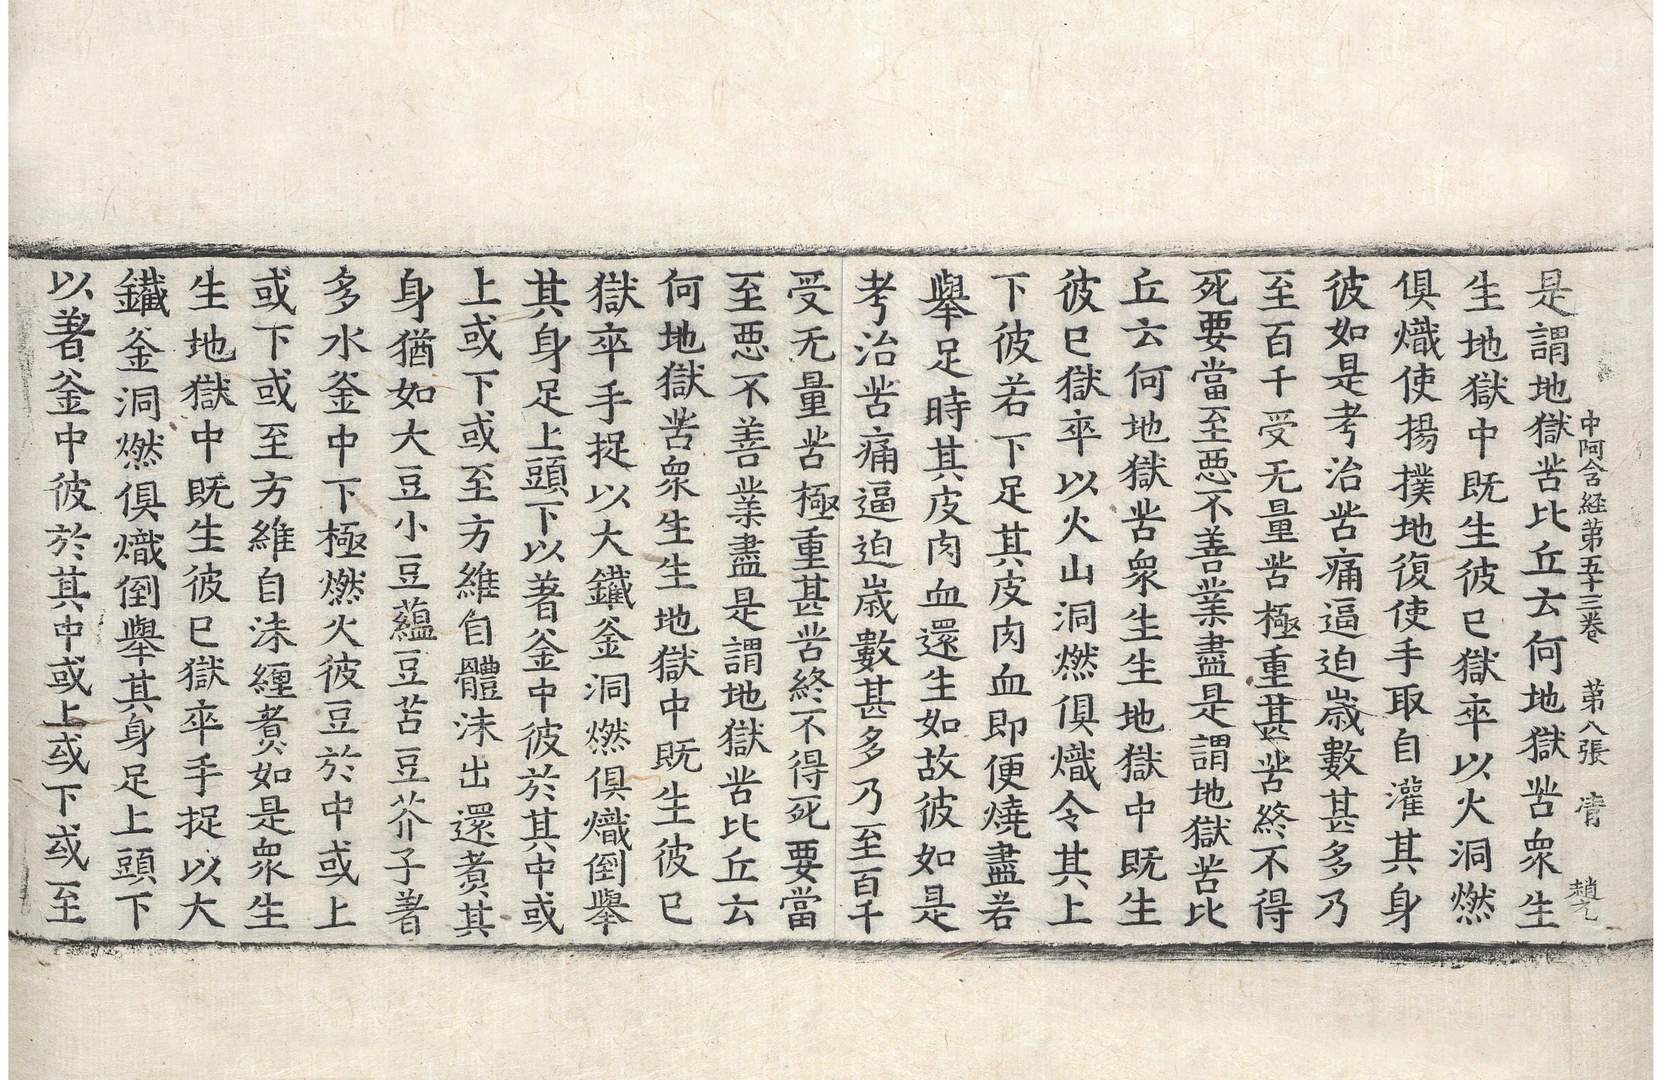 中阿含経第五十三卷　第八張　𮐃　趙之
是謂地獄苦比丘云何地獄苦衆生
生地獄中既生彼已獄卒以火洞燃
俱熾使揚撲地復使手取自灌其身
彼如是考治苦痛逼迫歲數甚多乃
至百千受无量苦極重甚苦終不得
死要當至惡不善業盡是謂地獄苦比
丘云何地獄苦衆生生地獄中既生
彼已獄卒以火山洞燃俱熾令其上
下彼若下足其皮肉血即便燒盡若
舉足時其皮肉血還生如故彼如是
考治苦痛逼迫歲數甚多乃至百千
受无量苦極重甚苦終不得死要當
至惡不善業盡是謂地獄苦比丘云
何地獄苦衆生生地獄中既生彼已
獄卒手捉以大鐵釜洞燃俱熾倒舉
其身足上頭下以著釜中彼於其中或
上或下或至方維自體沫出還煮其
身猶如大豆小豆蘊豆苦豆芥子著
多水釜中下極燃火彼豆於中或上
或下或至方維自沫纏煮如是衆生
生地獄中既生彼已獄卒手捉以大
鐵釜洞燃俱熾倒舉其身足上頭下
以著釜中彼於其中或上或下或至